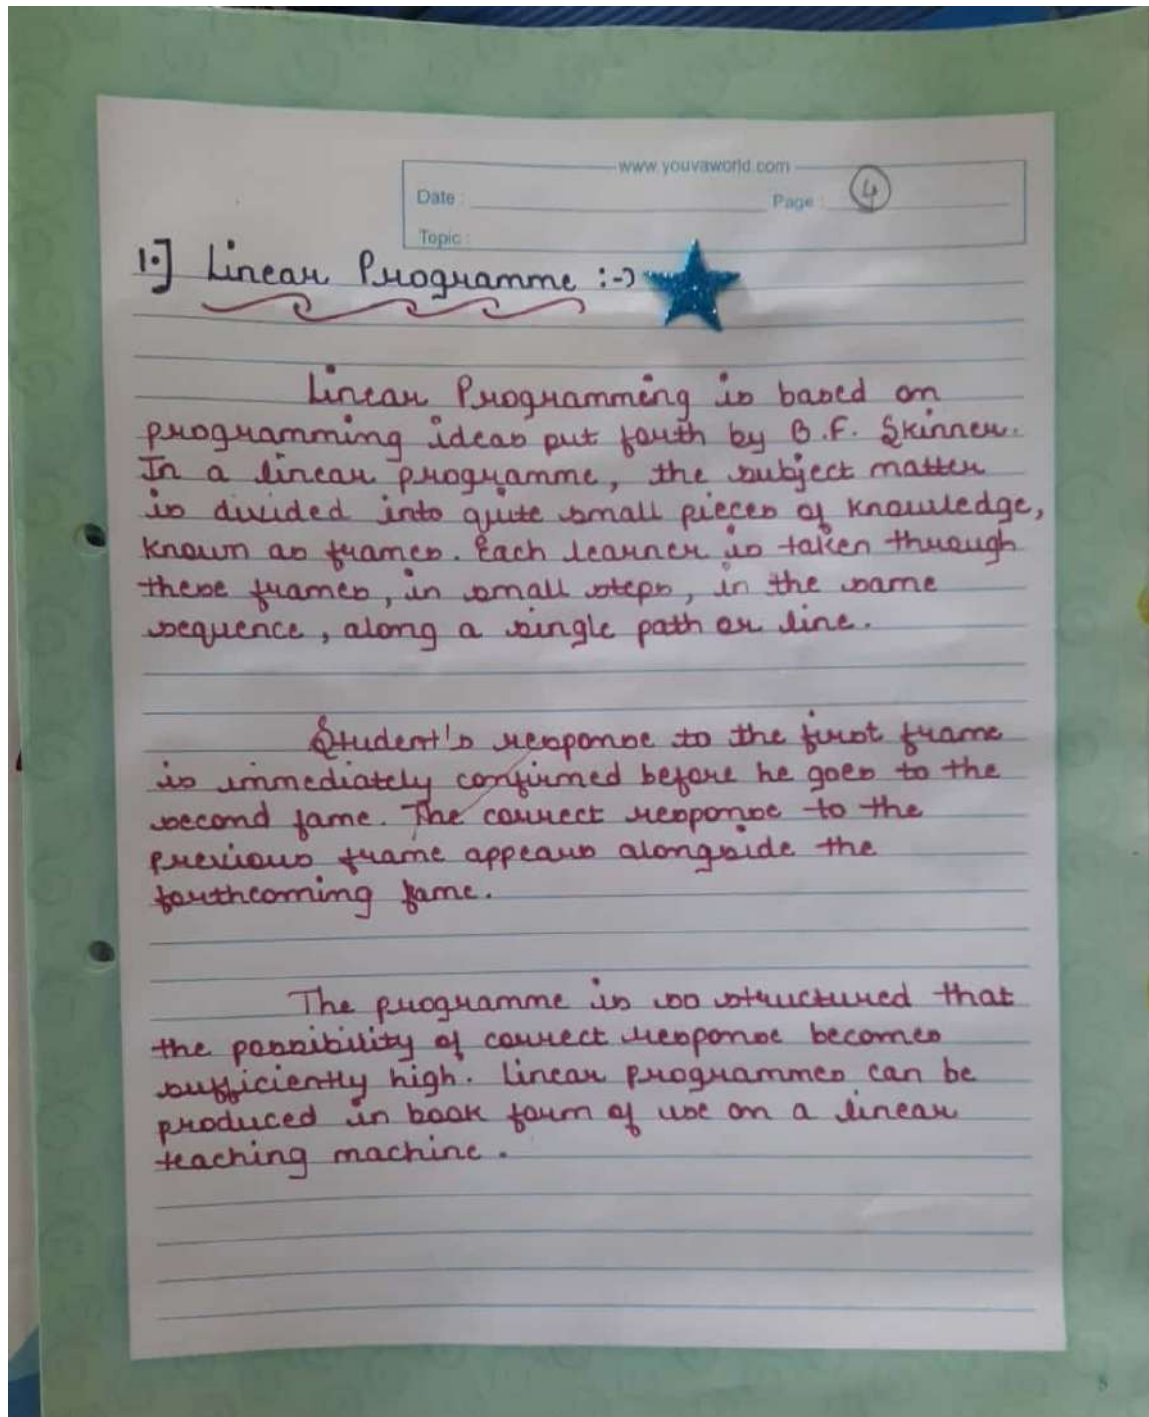 www.youvaworld.com
Date : Page : 4
Topic :
1.] Linear Programme :->
Linear Programming is based on
programming ideas put forth by B.F. Skinner.
In a linear programme, the subject matter
is divided into quite small pieces of knowledge,
known as frames. Each learner is taken through
these frames, in small steps, in the same
sequence, along a single path or line.
Student's response to the first frame
is immediately confirmed before he goes to the
second fame. The correct response to the
previous frame appears alongside the
forthcoming fame.
The programme is so structured that
the possibility of correct response becomes
sufficiently high. Linear programmes can be
produced in book form of use on a linear
teaching machine.